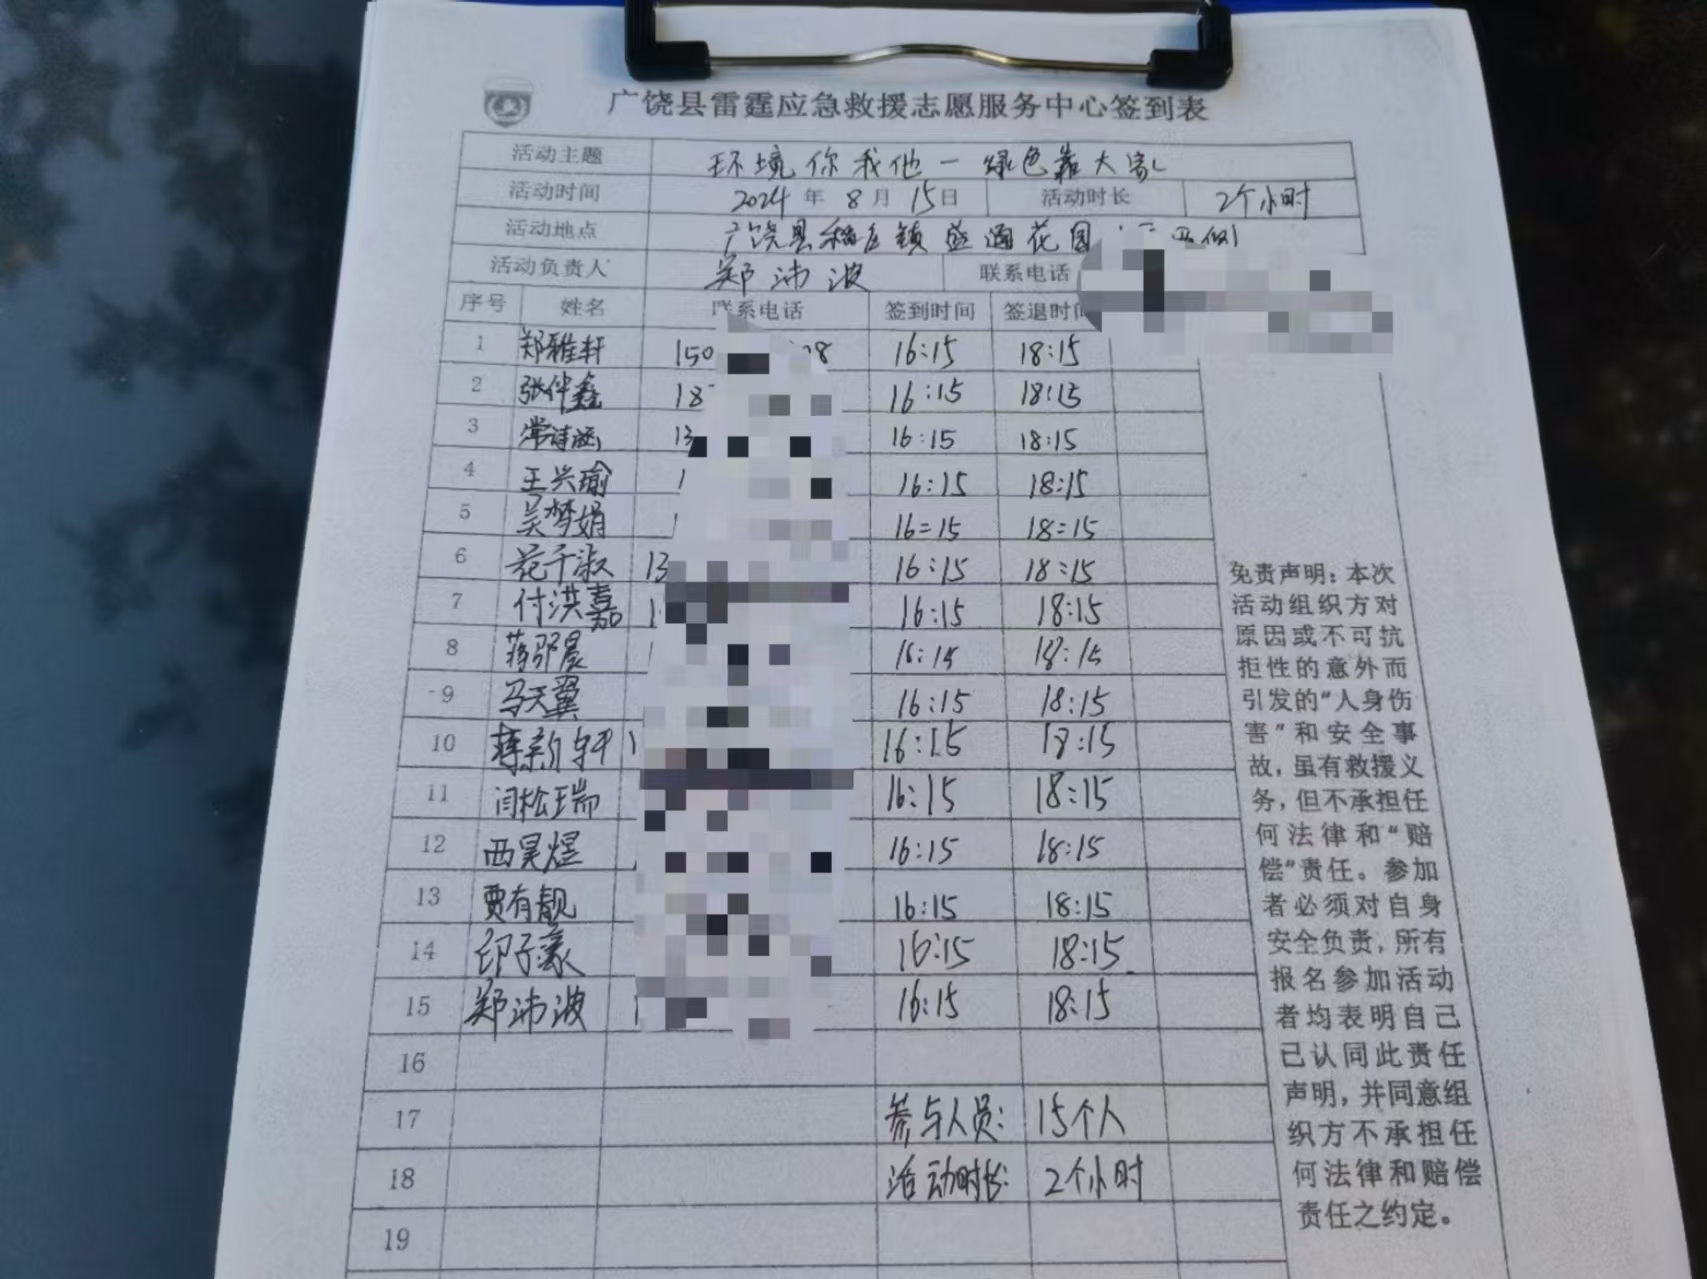 广饶县雷霆应急救援志愿服务中心签到表
活动主题 环境你我他一绿色靠大家
活动时间 2024年8月15日 活动时长 2个小时
活动地点 广饶县稻庄镇盛通花园 西侧
活动负责人 郑沛波 联系电话
序号 姓名 联系电话 签到时间 签退时间
1 郑雅轩 150 08 16:15 18:15
2 张伴鑫 18 16:15 18:15
3 常诗涵 13 16:15 18:15
4 王兴瑜 1 16:15 18:15
5 吴梦娟 1 16=15 18=15
6 范千淑 13 16:15 18:15
7 付洪嘉 1 16:15 18:15
8 蒋 晨 1 16:15 18:15
9 马天翼 16:15 18:15
10 蒋新轩 1 16:15 18:15
11 闫松瑞 16:15 18:15
12 西昊煜 16:15 18:15
13 贾有靓 16:15 18:15
14 印子豪 16:15 18:15
15 郑沛波 1 16:15 18:15
16
17 参与人员: 15个人
18 活动时长: 2个小时
19
免责声明：本次
活动组织方对
原因或不可抗
拒性的意外而
引发的“人身伤
害”和安全事
故，虽有救援义
务，但不承担任
何法律和“赔
偿”责任。参加
者必须对自身
安全负责，所有
报名参加活动
者均表明自己
已认同此责任
声明，并同意组
织方不承担任
何法律和赔偿
责任之约定。